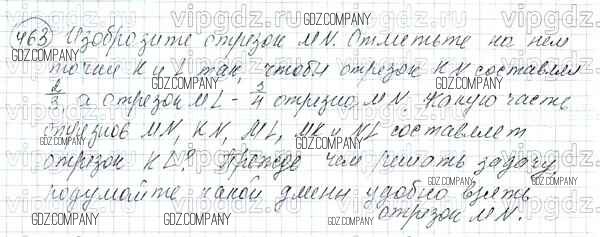 463 Изобразите отрезок MN. Отметьте на нем
точки K и L так, чтобы отрезок KN составлял
2/3, а отрезок ML - 3/4 отрезка MN. Какую часть
отрезков MN, KN, ML, MK и NL составляет
отрезок KL? Прежде чем решать задачу,
подумайте какой длины удобно взять
отрезок MN.